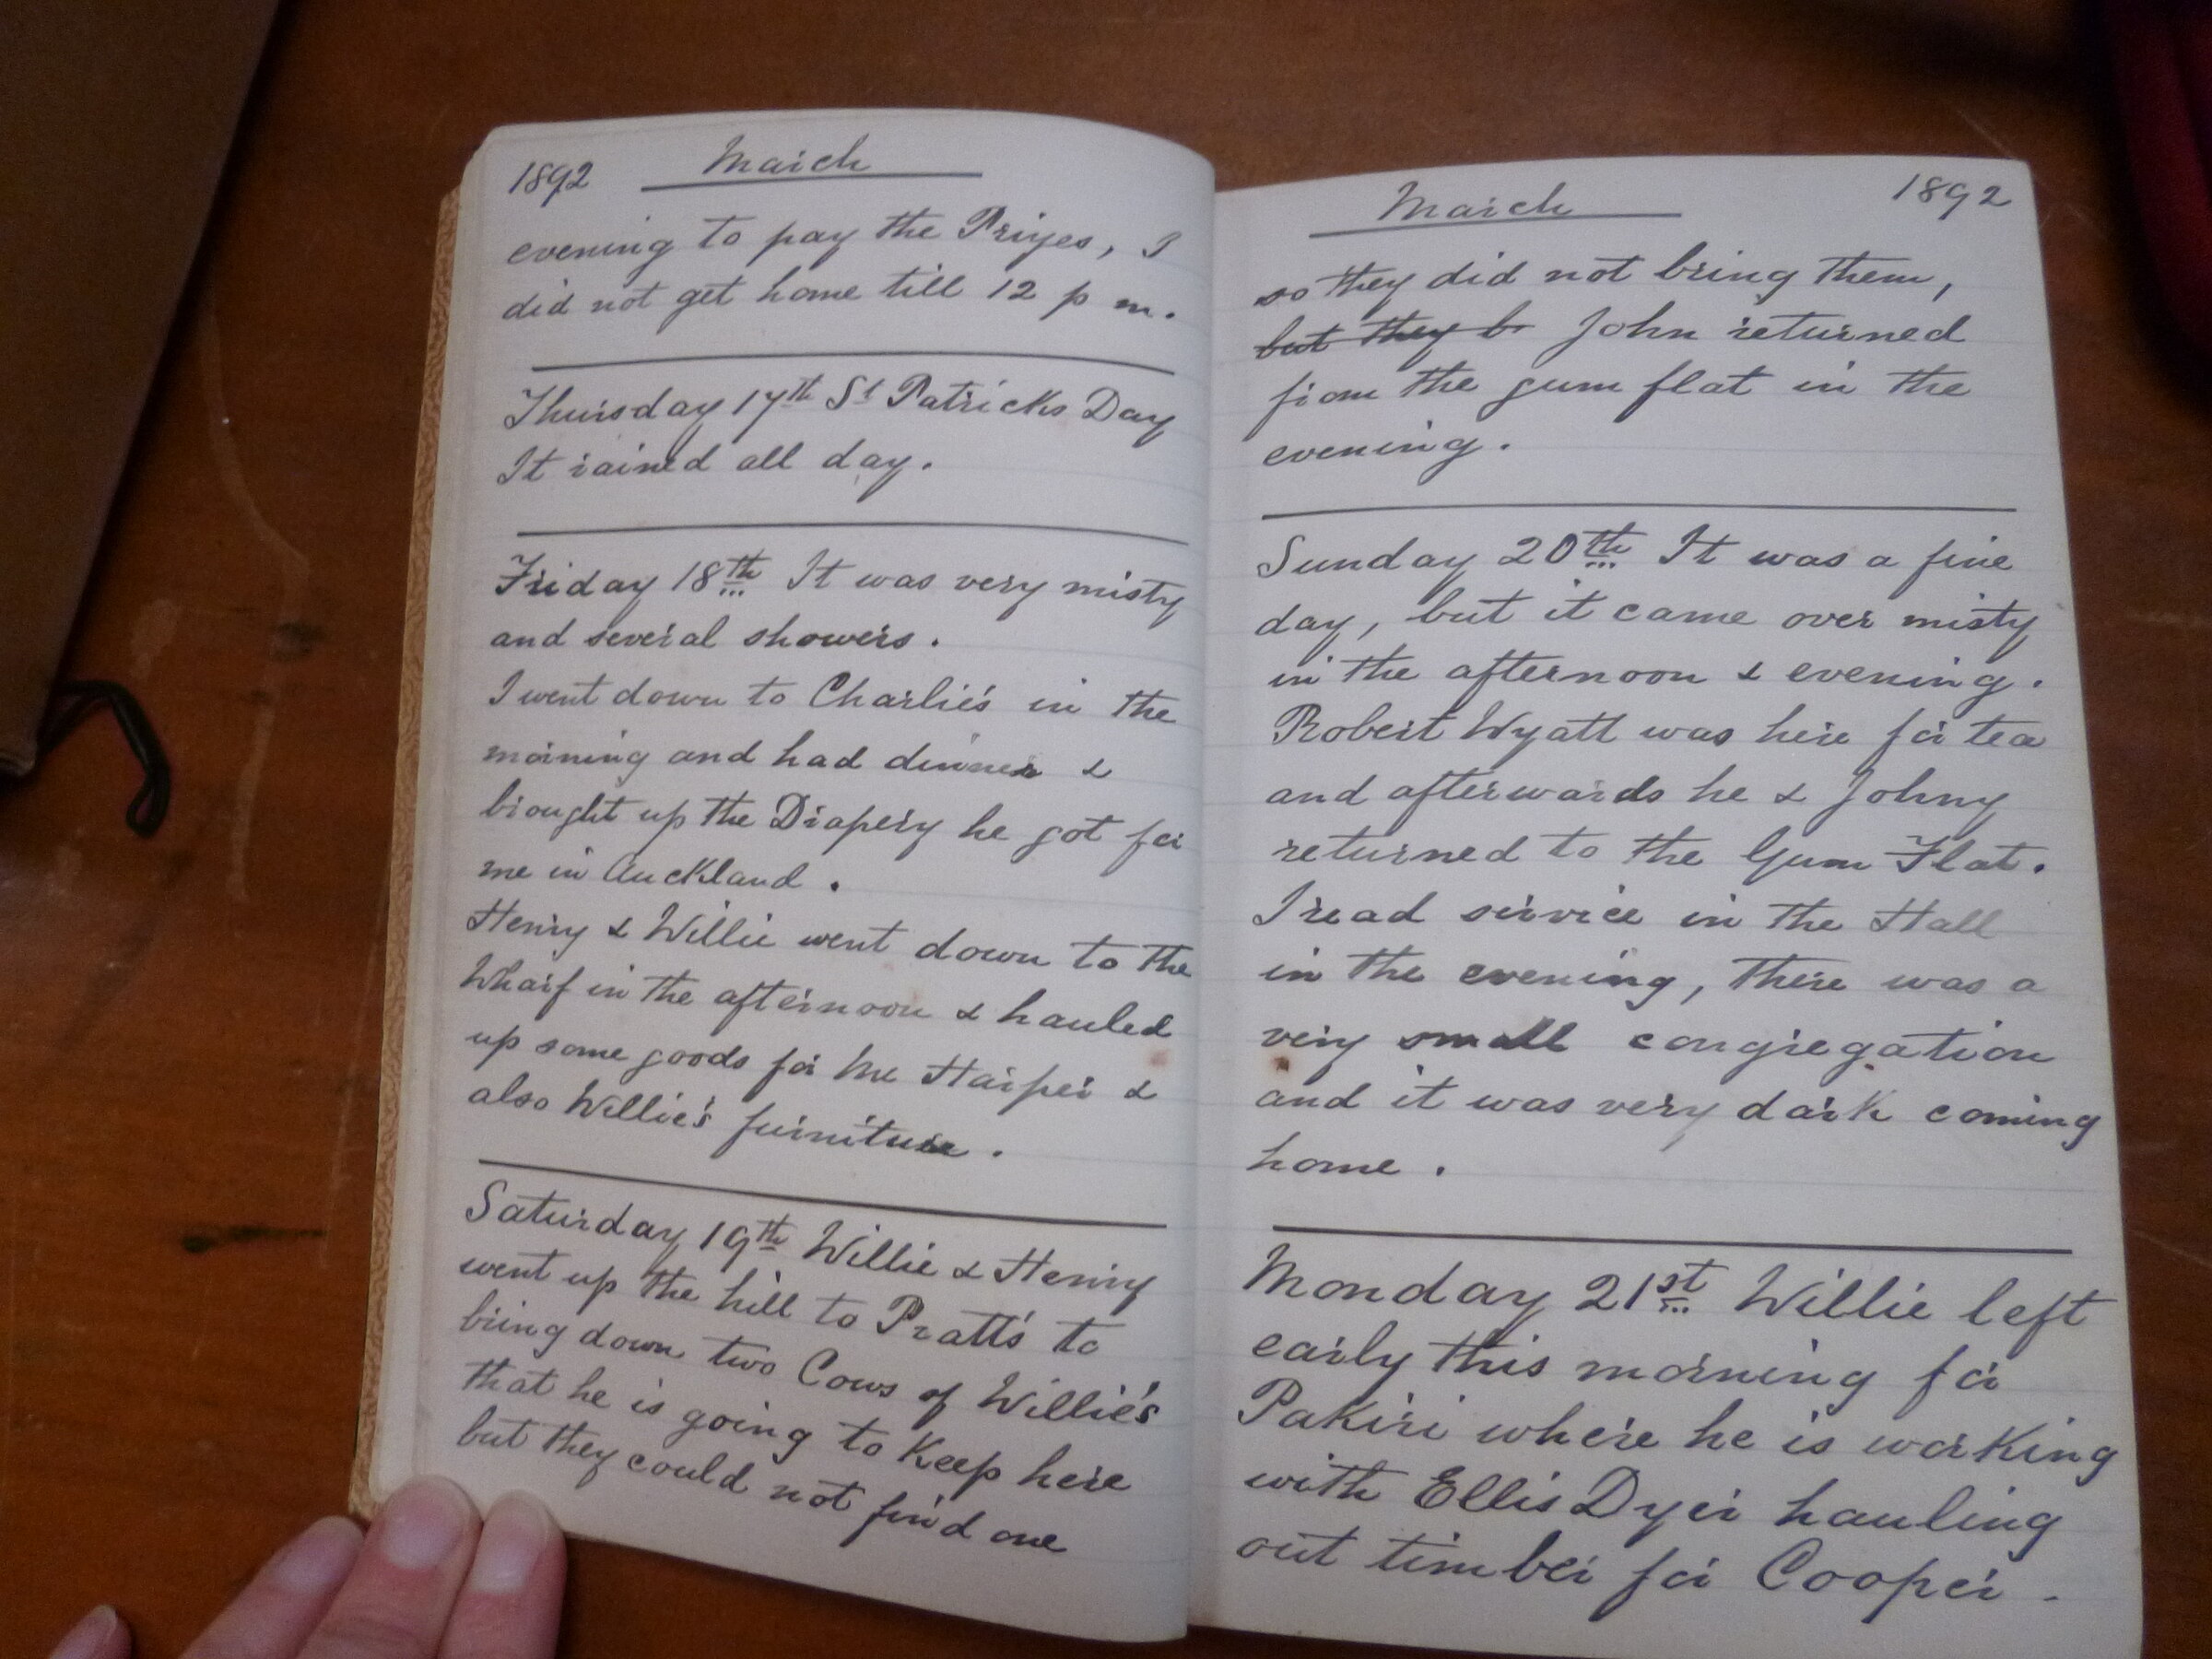 1892 March
evening to pay the Prizes, I
did not get home till 12 p m.
Thursday 17th St Patricks Day
It rained all day.
Friday 18th It was very misty
and several showers.
I went down to Charlie's in the
morning and had dinner &
brought up the Drapery he got for
me in Auckland.
Henry & Willie went down to the
Wharf in the afternoon & hauled
up some goods for Mr Harper &
also Willie's furniture.
Saturday 19th Willie & Henry
went up the hill to Pratt's to
bring down two Cows of Willie's
that he is going to Keep here
but they could not find one
March 1892
so they did not bring them,
but they b John returned
from the gum flat in the
evening.
Sunday 20th It was a fine
day, but it came over misty
in the afternoon & evening.
Robert Wyatt was here for tea
and afterwards he & Johny
returned to the Gum Flat.
I read service in the Hall
in the evening, there was a
very small congregation
and it was very dark coming
home.
Monday 21st Willie left
early this morning for
Pakiri where he is working
with Ellis Dyer hauling
out timber for Cooper.